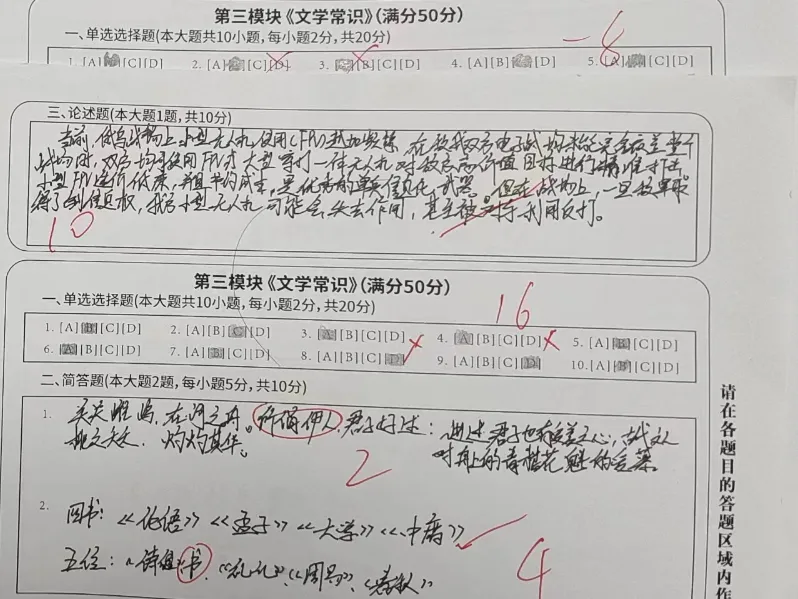 第三模块《文学常识》(满分50分)
一、单选选择题(本大题共10小题,每小题2分,共20分)
-8
1. [A] [C][D] 2. [A] [C][D] 3. [B][C][D] 4. [A][B] [D] 5. [A] [C][D]
三、论述题(本大题1题,共10分)
当前,俄乌战场上小型无人机使用(FPV)
战场时,双方均可使用FPV式大型察打一体无人机对敌高价值目标进行精准打击。
小型FPV造价低廉,并且节约成本,是优秀的 信息化武器。但在战场上,一旦敌军取
得了制信息权,我方小型无人机可能会失去作用,甚至被 利用反打。
10
第三模块《文学常识》(满分50分)
一、单选选择题(本大题共10小题,每小题2分,共20分)
16
1. [A] [C][D] 2. [A][B] [D] 3. [B][C][D] 4. [B][C][D] 5. [A] [C][D]
6. [B][C][D] 7. [A] [C][D] 8. [A][B][C] 9. [A][B][C] 10. [A] [C][D]
二、简答题(本大题2题,每小题5分,共10分)
1. 关关雎鸠,在河之洲。所谓伊人,君子好逑:
桃之夭夭,灼灼其华。
2
2. 四书:《论语》《孟子》《大学》《中庸》
五经:《诗经》书、《礼记》、《周易》、《春秋》
4
请在各题目的答题区域内作